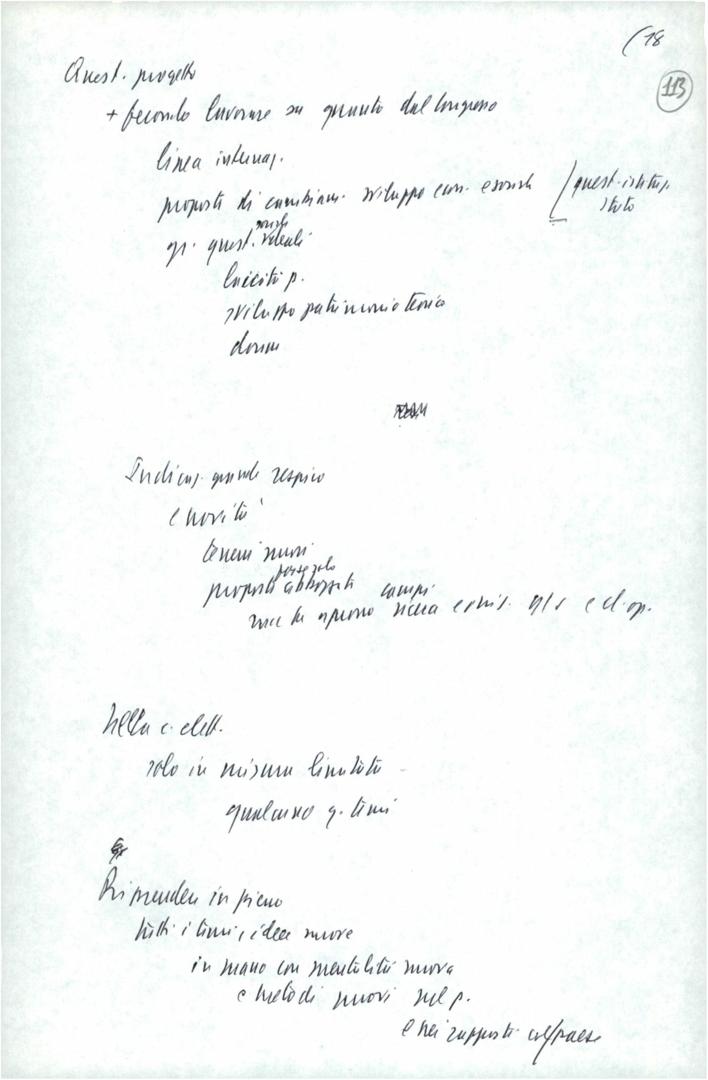 (18
113
Quest. progetto
+ fecondo lavorare su quanto dal Congresso
linea internaz.
proposti di cambiam. sviluppo econ. e sociale
quest. istituz.
stato
gr. quest. ideali
laicità p.
sviluppo patrimonio teorico
donne
Indicaz. grande respiro
e novità
terreni nuovi
proposti abbozzati campi
Nella c. elett.
solo in misura limitata
qualcuno q. temi
Riprendere in pieno
tutti i temi, idee nuove
in mano con mentalità nuova
e metodi nuovi nel p.
e nei rapporti col paese